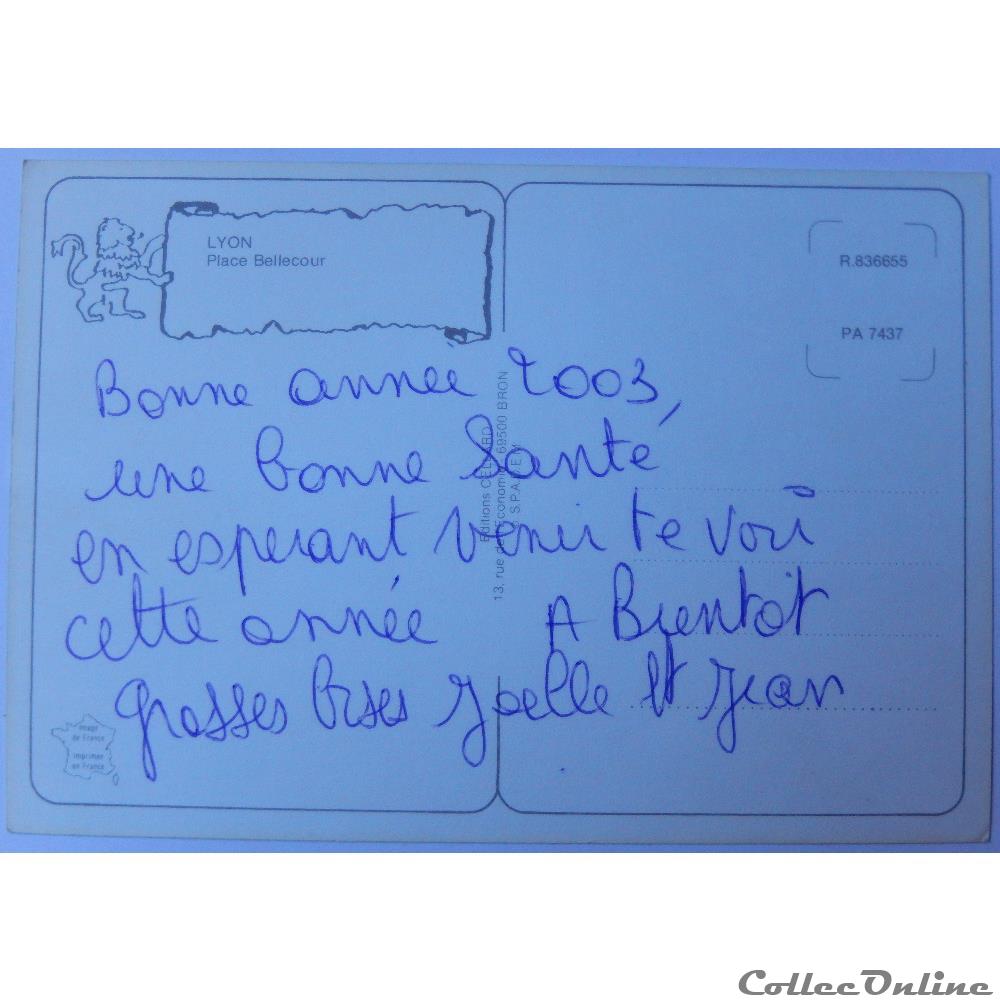 LYON
Place Bellecour
R.836655
PA 7437
Bonne année 2003,
une bonne Santé
en esperant venir te voir
cette année A Bientot
grosses bises Joelle et Jean
Editions CELLARD
13, rue de l'Economie - 69500 BRON
S.P.A.D.E.M.
image
de France
imprimer
en France
CollecOnline